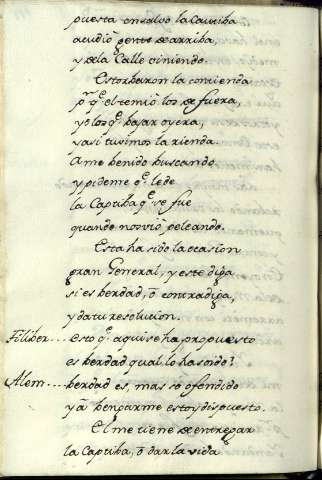 puesta en salvo la Cautiba
acudiò gente de arriba,
y de la Calle viniendo.
Estorbaron la contienda
pr. qe. el temiò los de fuera,
y o los qe. bajar oyera,
y asi tuvimos la rienda.
A me benido buscando
y pideme qe. le de
la Captiba qe. se fue
quando nos viò peleando.
Esta ha sido la ocasion
gran General, y este diga
si es berdad, ò contradiga,
y da tu resolucion.
Filiber.... esto qe. aqui se ha propuesto
es berdad qual lo ha sido?
Alem.... berdad es, mas so ofendido
y à bengarme estoy dispuesto.
El me tiene de entregar
la Captiba, ò dar la vida